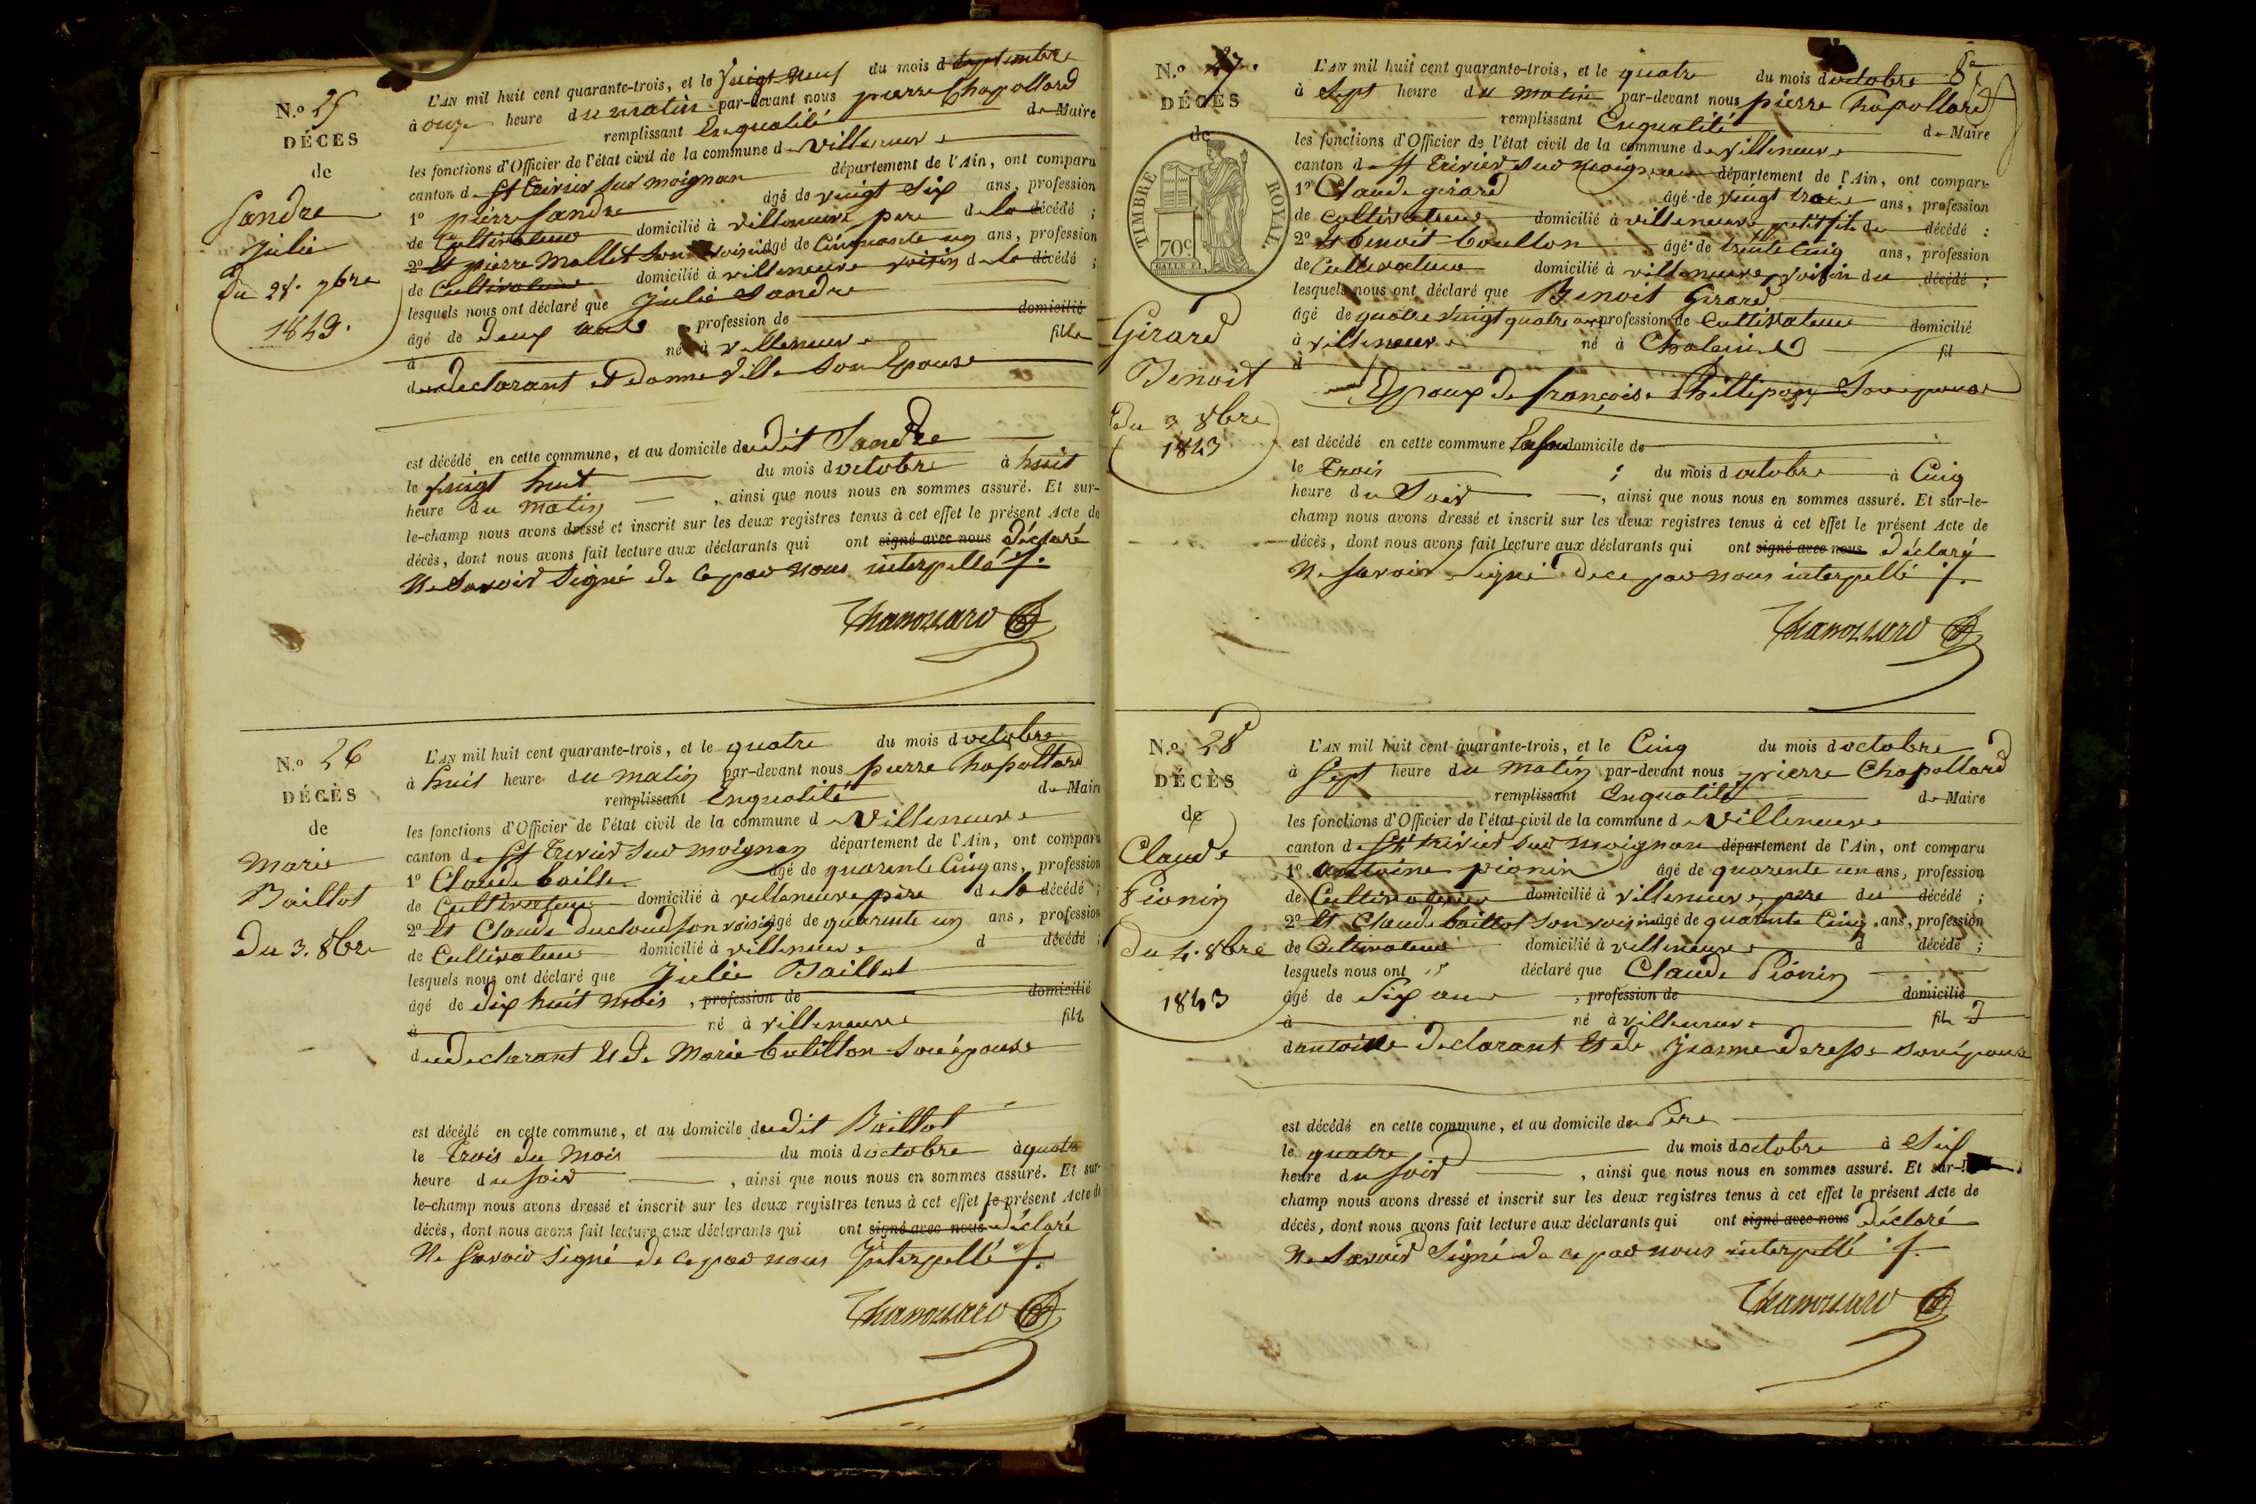 N.º 25
DÉCES
de
Sandre
Julie
Du 28. 7bre
1843.
L'AN mil huit cent quarante-trois, et le Vingt neuf du mois d septembre
à onze heure du matin par-devant nous pierre Chapollard
remplissant Enqualité de Maire
les fonctions d'Officier de l'état civil de la commune d e Villeneuve
canton d e St Trivier sur moignan département de l'Ain, ont comparu
1º pierre Sandre âgé de vingt Six ans, profession
de Cultivateur domicilié à villeneuve pere de la décédé ;
2º Et pierre Mallet Son voisin âgé de Cinquante un ans, profession
de Cultivateur domicilié à villeneuve voisin de la décédé ;
lesquels nous ont déclaré que Julie Sandre
âgé de deux ans profession de domicilié
à né à Villeneuve fille
du declarant et de anne Son Epouse
est décédé en cette commune, et au domicile du dit Sandre
le vingt huit du mois d octobre à huit
heure du matin , ainsi que nous nous en sommes assuré. Et sur-
le-champ nous avons dressé et inscrit sur les deux registres tenus à cet effet le présent Acte de
décès, dont nous avons fait lecture aux déclarants qui ont signé avec nous déclaré
Ne Savoir Signé de Ce par nous interpellé ./.
N.º 26
DÉCÈS
de
Marie
Baillot
Du 3. 8bre
L'AN mil huit cent quarante-trois, et le quatre du mois d octobre
à huit heure du matin par-devant nous pierre Chapollard
remplissant Enqualité de Maire
les fonctions d'Officier de l'état civil de la commune d e Villeneuve
canton d e St Trivier sur moignan département de l'Ain, ont comparu
1º Claude baille âgé de quarente Cinq ans, profession
de Cultivateur domicilié à villeneuve père de la décédé ;
2º Et Claude duclaud son voisin âgé de quarente un ans, profession
de Cultivateur domicilié à villeneuve d décédé ;
lesquels nous ont déclaré que Julie Baillot
âgé de dix huit mois , profession de domicilié
à né à villeneuve fille
du declarant Et de Marie Son épouse
est décédé en cette commune, et au domicile du dit Baillot
le trois du Mois du mois d octobre à quatre
heure du soir , ainsi que nous nous en sommes assuré. Et sur-
le-champ nous avons dressé et inscrit sur les deux registres tenus à cet effet le présent Acte de
décès, dont nous avons fait lecture aux déclarants qui ont signé avec nous déclaré
Ne Savoir Signé de Ce par nous Interpellé ./.
N.º 27.
DÉCÈS
de
TIMBRE ROYAL
70c
Girard
Benoit
du 3 8bre
1843
8e
L'AN mil huit cent quarante-trois, et le quatre du mois d octobre
à Sept heure du matin par-devant nous pierre Chapollard
remplissant Enqualité de Maire
les fonctions d'Officier de l'état civil de la commune d e Villeneuve
canton d e St Trivier sur moignan département de l'Ain, ont comparu
1º Claude girard âgé de vingt trois ans, profession
de Cultivateur domicilié à villeneuve petit fils du décédé ;
2º Et benoit boullon âgé de trente Cinq ans, profession
de Cultivateur domicilié à villeneuve voisin du décédé ;
lesquels nous ont déclaré que Benoit Girard
âgé de quatre vingt quatre ans profession de Cultivateur domicilié
à villeneuve né à fil
d Epoux de françoise Phillipon Son épouse
est décédé en cette commune domicile de
le Trois du mois d octobre à Cinq
heure du Soir , ainsi que nous nous en sommes assuré. Et sur-le-
champ nous avons dressé et inscrit sur les deux registres tenus à cet effet le présent Acte de
décès, dont nous avons fait lecture aux déclarants qui ont signé avec nous déclaré
Ne Savoir Signé de ce par nous interpellé ./.
N.º 28
DÉCÈS
de
Claude
Pionin
Du 4. 8bre
1843
L'AN mil huit cent quarante-trois, et le Cinq du mois d octobre
à Sept heure du matin par-devant nous pierre Chapollard
remplissant Enqualité de Maire
les fonctions d'Officier de l'état civil de la commune d e Villeneuve
canton d e St trivier sur moignan département de l'Ain, ont comparu
1º antoine pionin âgé de quarente un ans, profession
de Cultivateur domicilié à Villeneuve, pere du décédé ;
2º Et Claude baillot son voisin âgé de quarente Cinq ans, profession
de Cultivateur domicilié à villeneuve d décédé ;
lesquels nous ont déclaré que Claude Pionin
âgé de Six ans , profession de domicilié
à né à villeneuve fils
d antoine declarant Et de jeanne son épouse
est décédé en cette commune, et au domicile du Pere
le quatre du mois d octobre à Six
heure du soir , ainsi que nous nous en sommes assuré. Et sur-le-
champ nous avons dressé et inscrit sur les deux registres tenus à cet effet le présent Acte de
décès, dont nous avons fait lecture aux déclarants qui ont signé avec nous déclaré
Ne Savoir Signé de ce par nous interpellé ./.